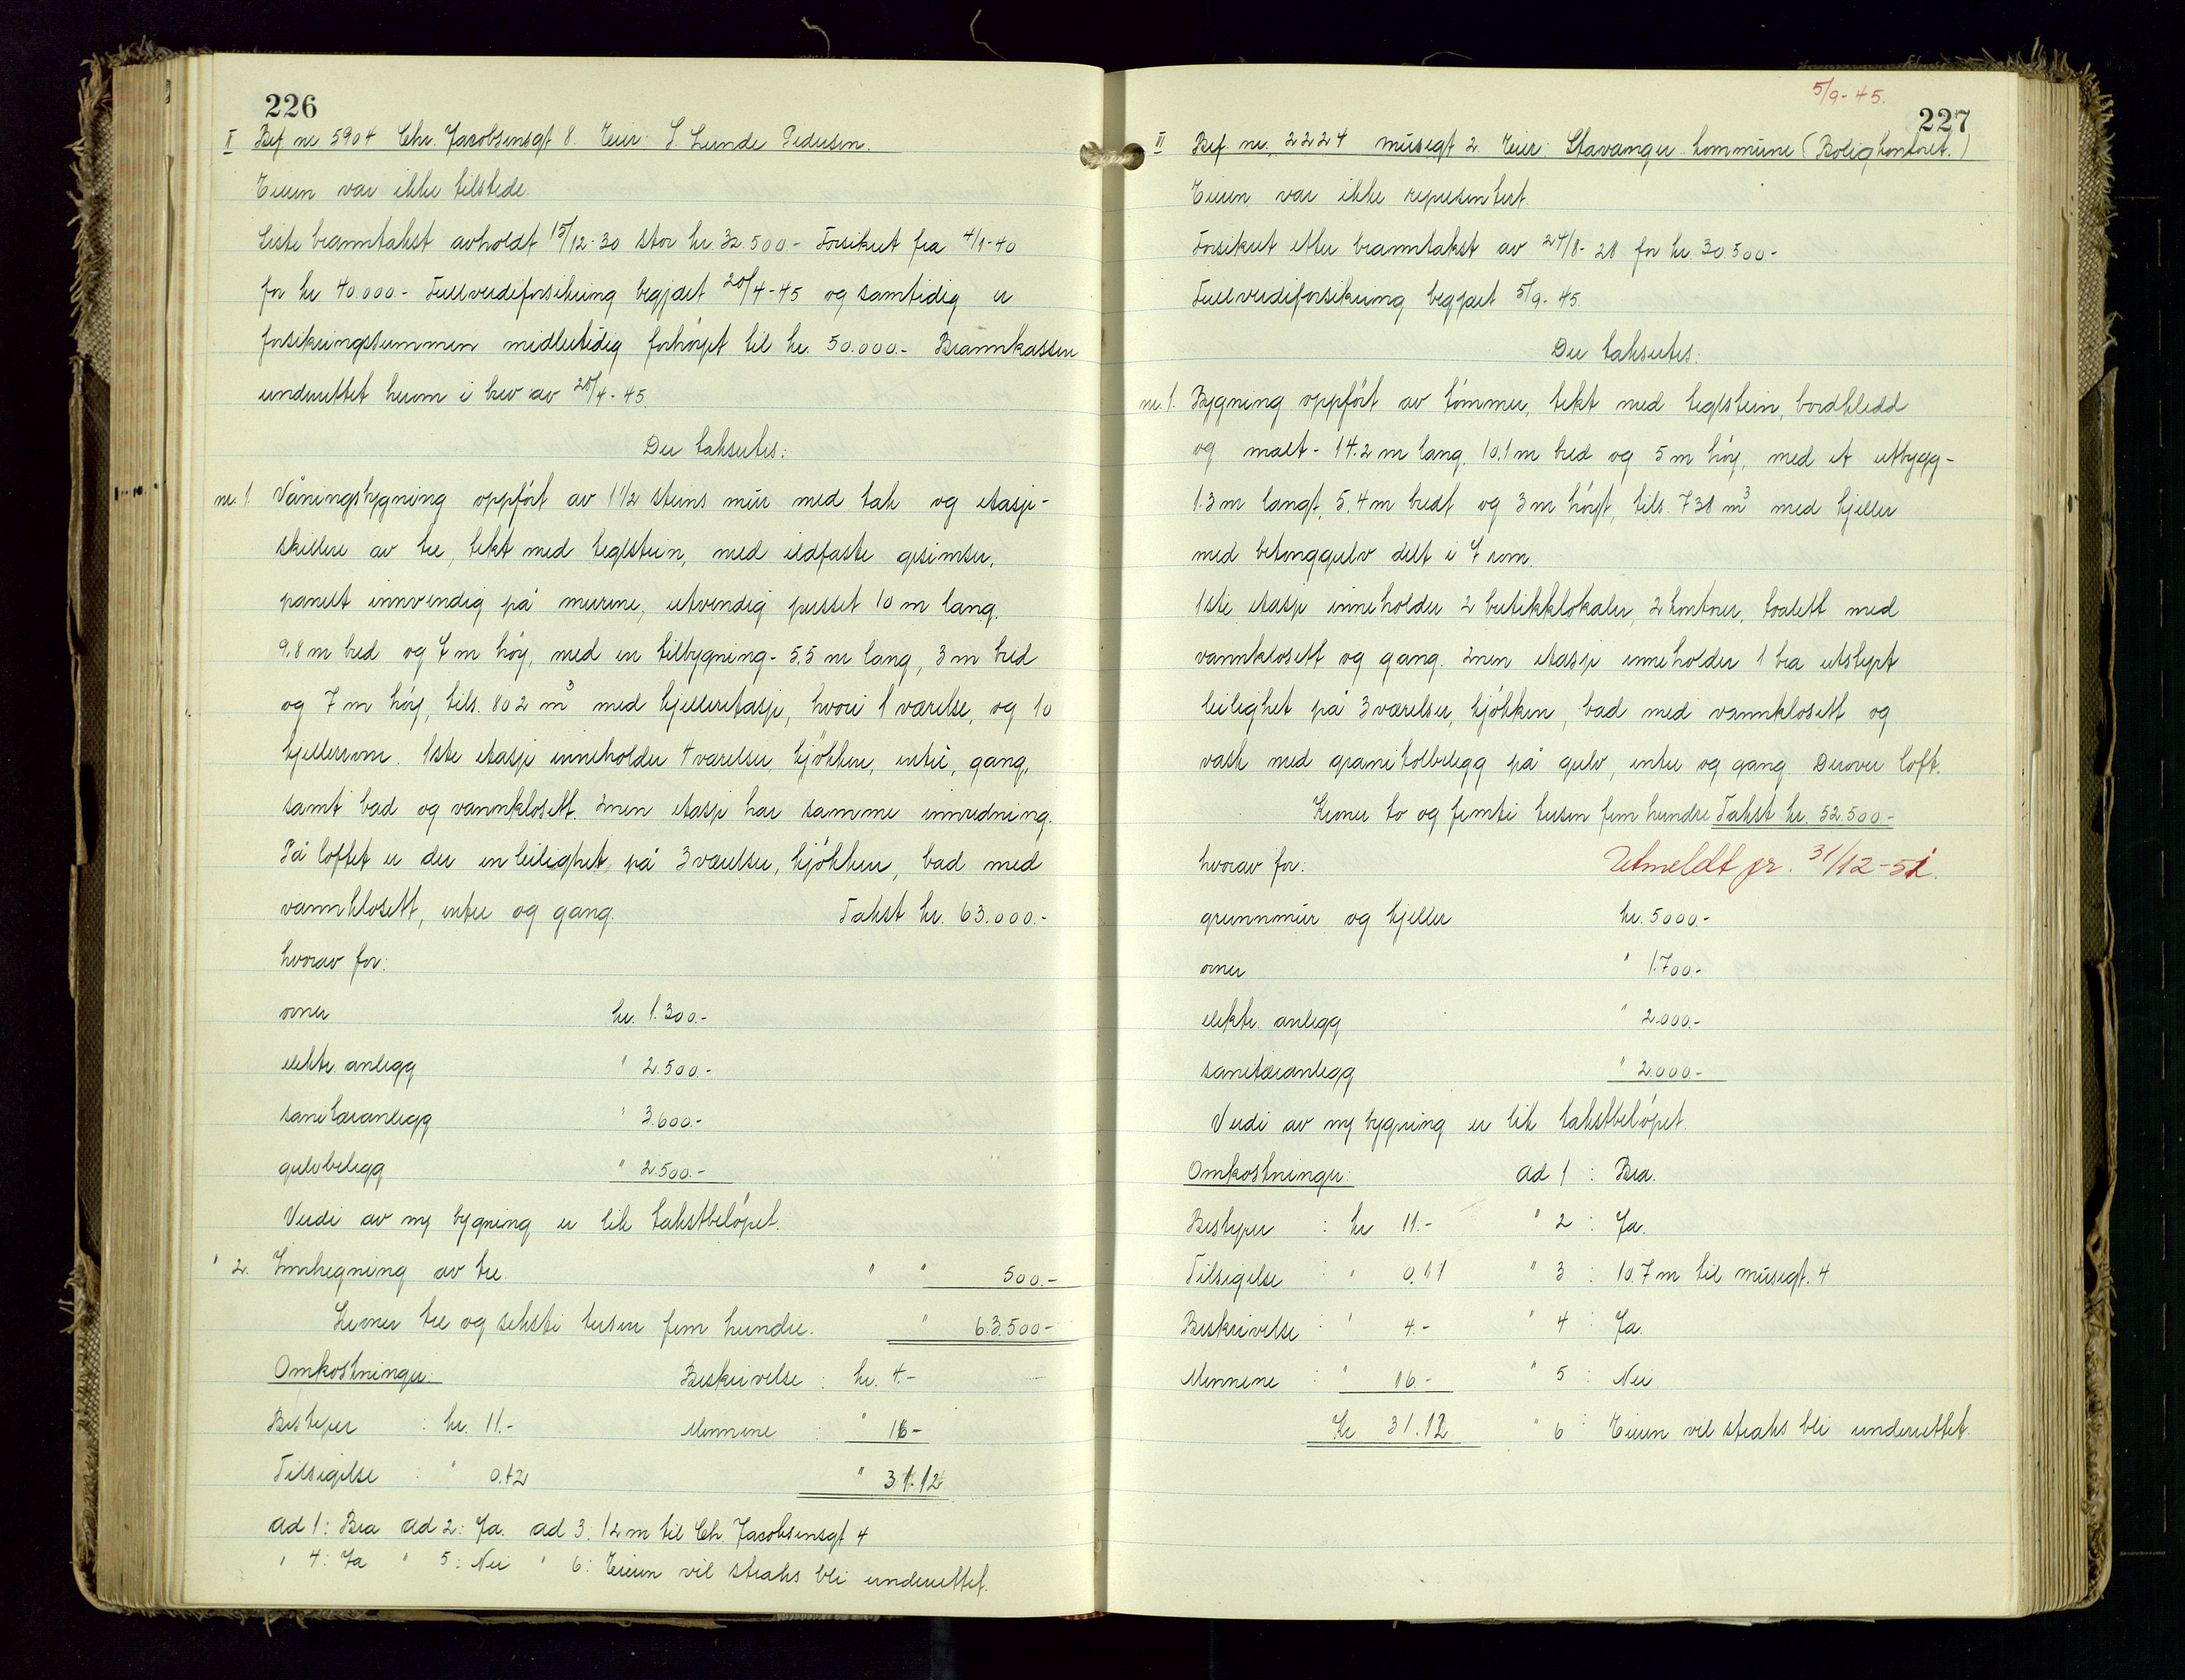 226
II Bef. nr. 5904 Chr. Jacobsensgt 8. Eier: S. Lunde Pedersen.
Eieren var ikke tilstede.
Siste branntakst avholdt 15/12-30 stor kr. 32.500.- Forsikret fra 4/1-40
for kr 40.000.- Fullverdiforsikring begjært 20/4-45 og samtidig er
forsikringssummen midlertidig forhöyet til kr. 50.000.- Brannkassen
underrettet herom i brev av 20/4-45.
Der takseres:
nr. 1. Våningsbygning oppfört av 1 1/2 steins mur med tak og etasje-
skillere av tre, tekt med teglstein, med ildfaste gesimser,
panelt innvendig på murene, utvendig pusset 10 m lang.
9.8 m bred og 7 m höy, med en tilbygning - 5,5 m lang, 3 m bred
og 7 m höy, tils. 802 m3 med kjelleretasje, hvori 1 værelse, og 10
kjellerrom. 1ste etasje inneholder 4 værelser, kjökken, entré, gang,
samt bad og vannklosett. 2nen etasje har samme innredning.
På loftet er der en leilighet på 3 værelser, kjökken, bad med
vannklosett, entre og gang. Takst kr. 63.000.-
hvorav for:
ovner kr. 1.300.-
elektr. anlegg " 2.500.-
sanitæranlegg " 3.600.-
gulvbelegg " 2.500.-
Verdi av ny bygning er lik takstbelöpet.
" 2. Innhegning av tre. " " 500.-
Kroner tre og seksti tusen fem hundre. " 63.500-
Omkostninger: Beskrivelse : kr. 4.-
Bestyrer : kr. 11.- Mennene : " 16-
Tilsigelse : " 0.12 " 31.12
ad 1: Bra ad 2: Ja. ad 3: 12 m til Chr. Jacobsensgt 4
" 4: Ja " 5: Nei " 6: Eieren vil straks bli underrettet.
5/9-45.
227
II Bef. nr. 2224 musegt 2. Eier: Stavanger kommune (Boligkontoret.)
Eieren var ikke representert.
Forsikret etter branntakst av 24/8-28 for kr. 30.500-
Fullverdiforsikring begjært 5/9-45.
Der takseres:
nr. 1. Bygning oppfört av tömmer, tekt med teglstein, bordkledd
og malt - 14.2 m lang, 10,1 m bred og 5 m höy, med et utbygg -
1.3 m langt, 5,4 m bredt og 3 m höyt, tils. 738 m3 med kjeller
med betonggulv delt i 7 rom.
1ste etasje inneholder 2 butikklokaler, 2 kontorer, toalett med
vannklosett og gang. 2nen etasje inneholder 1 bra utstyrt
leilighet på 3 værelser, kjökken, bad med vannklosett og
vask med granitolbelegg på gulv, entre og gang. Derover loft.
Kroner to og femti tusen fem hundre Takst kr. 52.500.-
hvorav for: Utmeldt pr. 31/12-51.
grunnmur og kjeller kr. 5000.-
ovner " 1.700.-
elektr. anlegg " 2.000.-
sanitæranlegg " 2.000.-
Verdi av ny bygning er lik takstbelöpet.
Omkostninger: ad 1 : Bra.
Bestyrer : kr 11.- " 2 : Ja.
Tilsigelse : " 0,11 " 3 : 10.7 m til musegt. 4
Beskrivelse : " 4.- " 4 : Ja.
Mennene : " 16.- " 5 : Nei.
Kr 31.12 " 6 : Eieren vil straks bli underrettet.